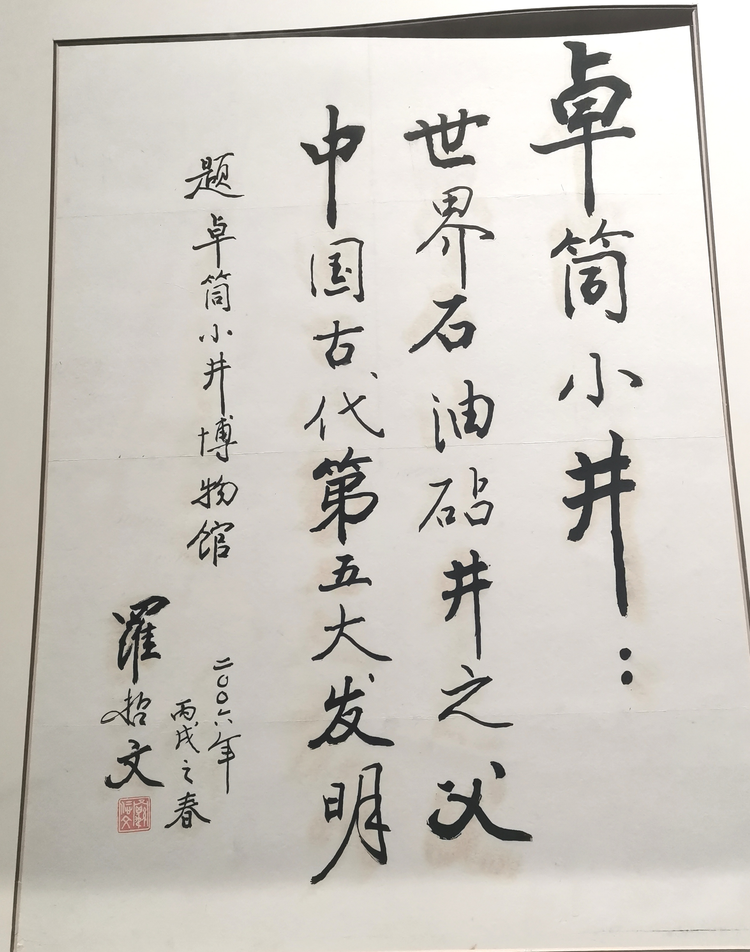 卓筒小井：
世界石油砧井之父
中国古代第五大发明
题卓筒小井博物馆
二〇〇六年
丙戌之春
羅哲文